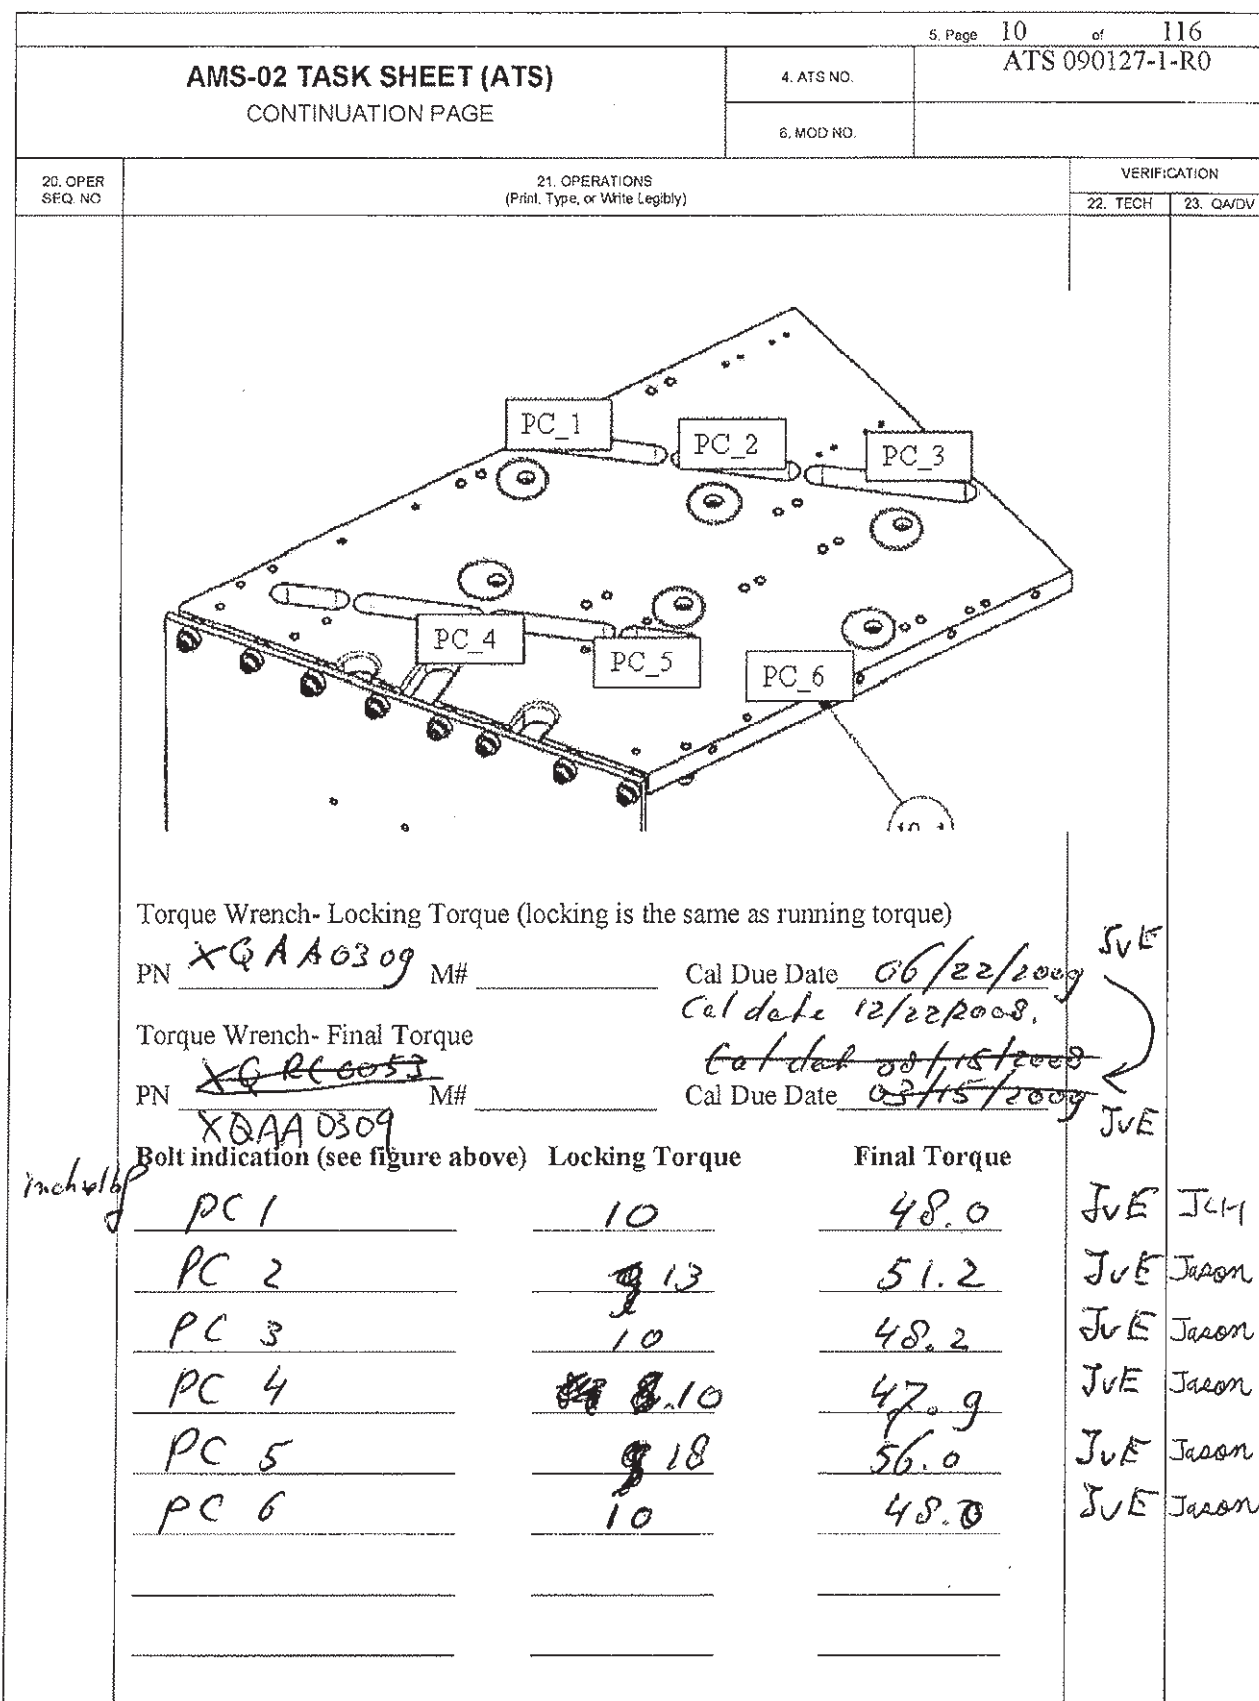 5. Page 10 of 116
AMS-02 TASK SHEET (ATS)
CONTINUATION PAGE
4. ATS NO.
ATS 090127-1-R0
6. MOD NO.
20. OPER
SEQ. NO
21. OPERATIONS
(Print, Type, or Write Legibly)
VERIFICATION
22. TECH
23. QA/DV
PC_1
PC_2
PC_3
PC_4
PC_5
PC_6
Torque Wrench- Locking Torque (locking is the same as running torque)
PN XQAA0309 M# Cal Due Date 06/22/2009 JvE
Cal date 12/22/2008.
Torque Wrench- Final Torque
Cal dat 08/15/2008
PN M# Cal Due Date 03/15/2009
XQAA0309 JvE
Bolt indication (see figure above) Locking Torque Final Torque
PC 1 10 48.0 JvE JCH
PC 2 13 51.2 JvE Jason
PC 3 10 48.2 JvE Jason
PC 4 10 47.9 JvE Jason
PC 5 18 56.0 JvE Jason
PC 6 10 48.0 JvE Jason